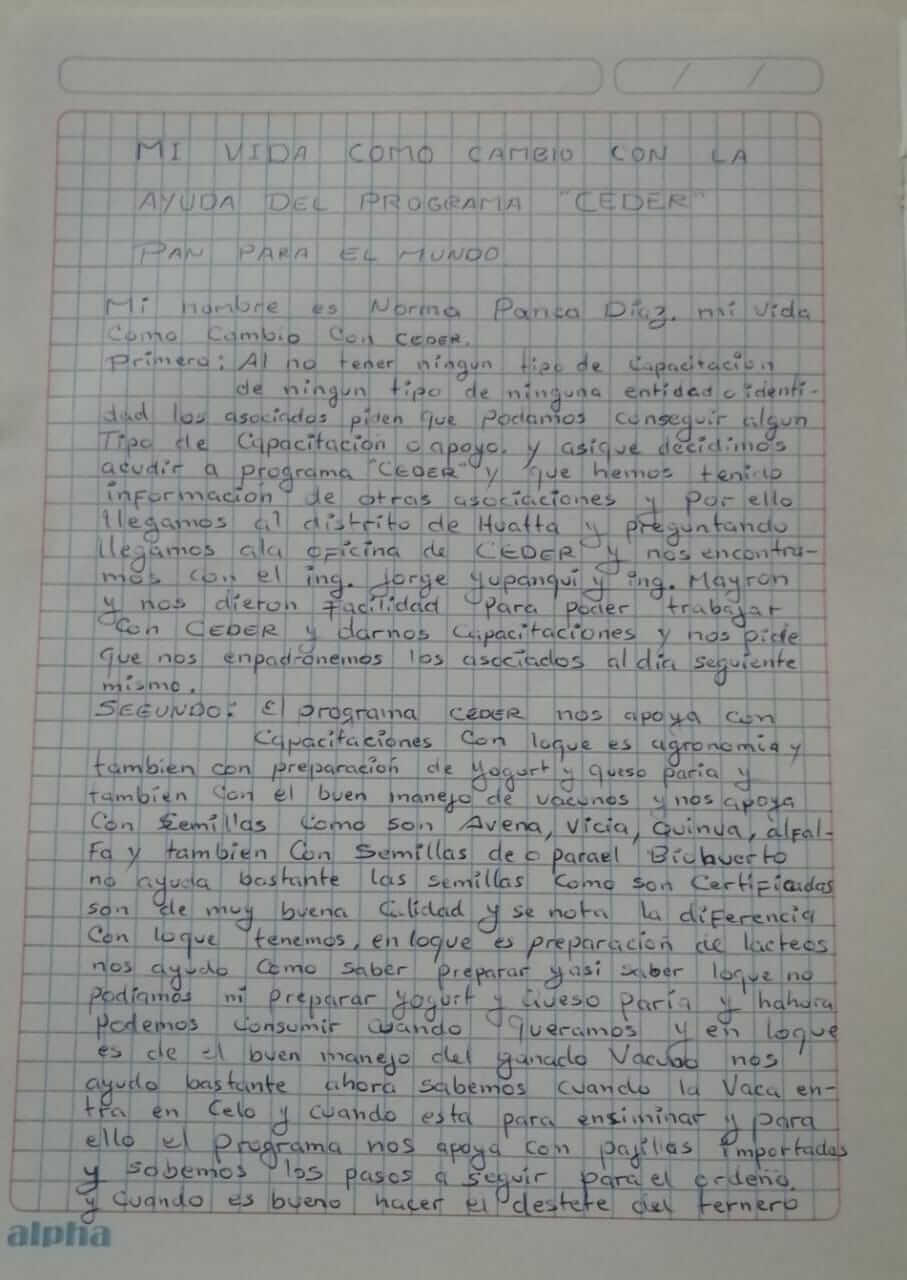 MI VIDA COMO CAMBIO CON LA
AYUDA DEL PROGRAMA "CEDER"
PAN PARA EL MUNDO
Mi nombre es Norma Panca Diaz. mi vida
Como Cambio Con CEDER.
primero: Al no tener ningun tipo de Capacitacion
de ningun tipo de ninguna entidad o identi-
dad los asociados piden que podamos conseguir algun
Tipo de Capacitacion o apoyo. y asique decidimos
acudir a programa "CEDER" y que hemos tenido
informacion de otras asociaciones y por ello
llegamos al distrito de Huatta y preguntando
llegamos ala oficina de CEDER y nos encontra-
mos con el ing. Jorge yupanqui y ing. Mayron
y nos dieron Facilidad para poder trabajar
Con CEDER y darnos Capacitaciones y nos pide
que nos enpadronemos los asociados al dia seguiente
mismo.
SEGUNDO: El programa CEDER nos apoya con
Capacitaciones Con loque es agronomia y
tambien con preparacion de yogurt y queso paria y
tambien Con el buen manejo de vacunos y nos apoya
Con Semillas Como son Avena, Vicia, Quinua, alFal-
Fa y tambien Con Semillas de o parael Biohuerto
no ayuda bastante las semillas Como son CertiFicadas
son de muy buena Calidad y se nota la diFerencia
Con loque tenemos, en loque es preparacion de lacteos
nos ayudo Como saber preparar yasi saber loque no
podiamos ni preparar yogurt y Queso paria y hahora
Podemos Consumir cuando queramos y en loque
es de el buen manejo del ganado Vacuno nos
ayudo bastante ahora sabemos cuando la Vaca en-
tra en Celo y cuando esta para ensiminar y para
ello el programa nos apoya con pajillas importadas
y sobemos los pasos a seguir parael ordeño.
y Cuando es bueno hacer el destete del ternero
alpha